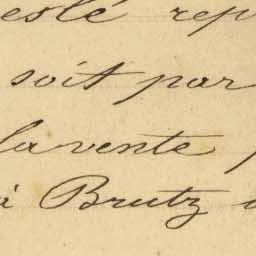 eslé rep
soit par
la vente
à Brutz